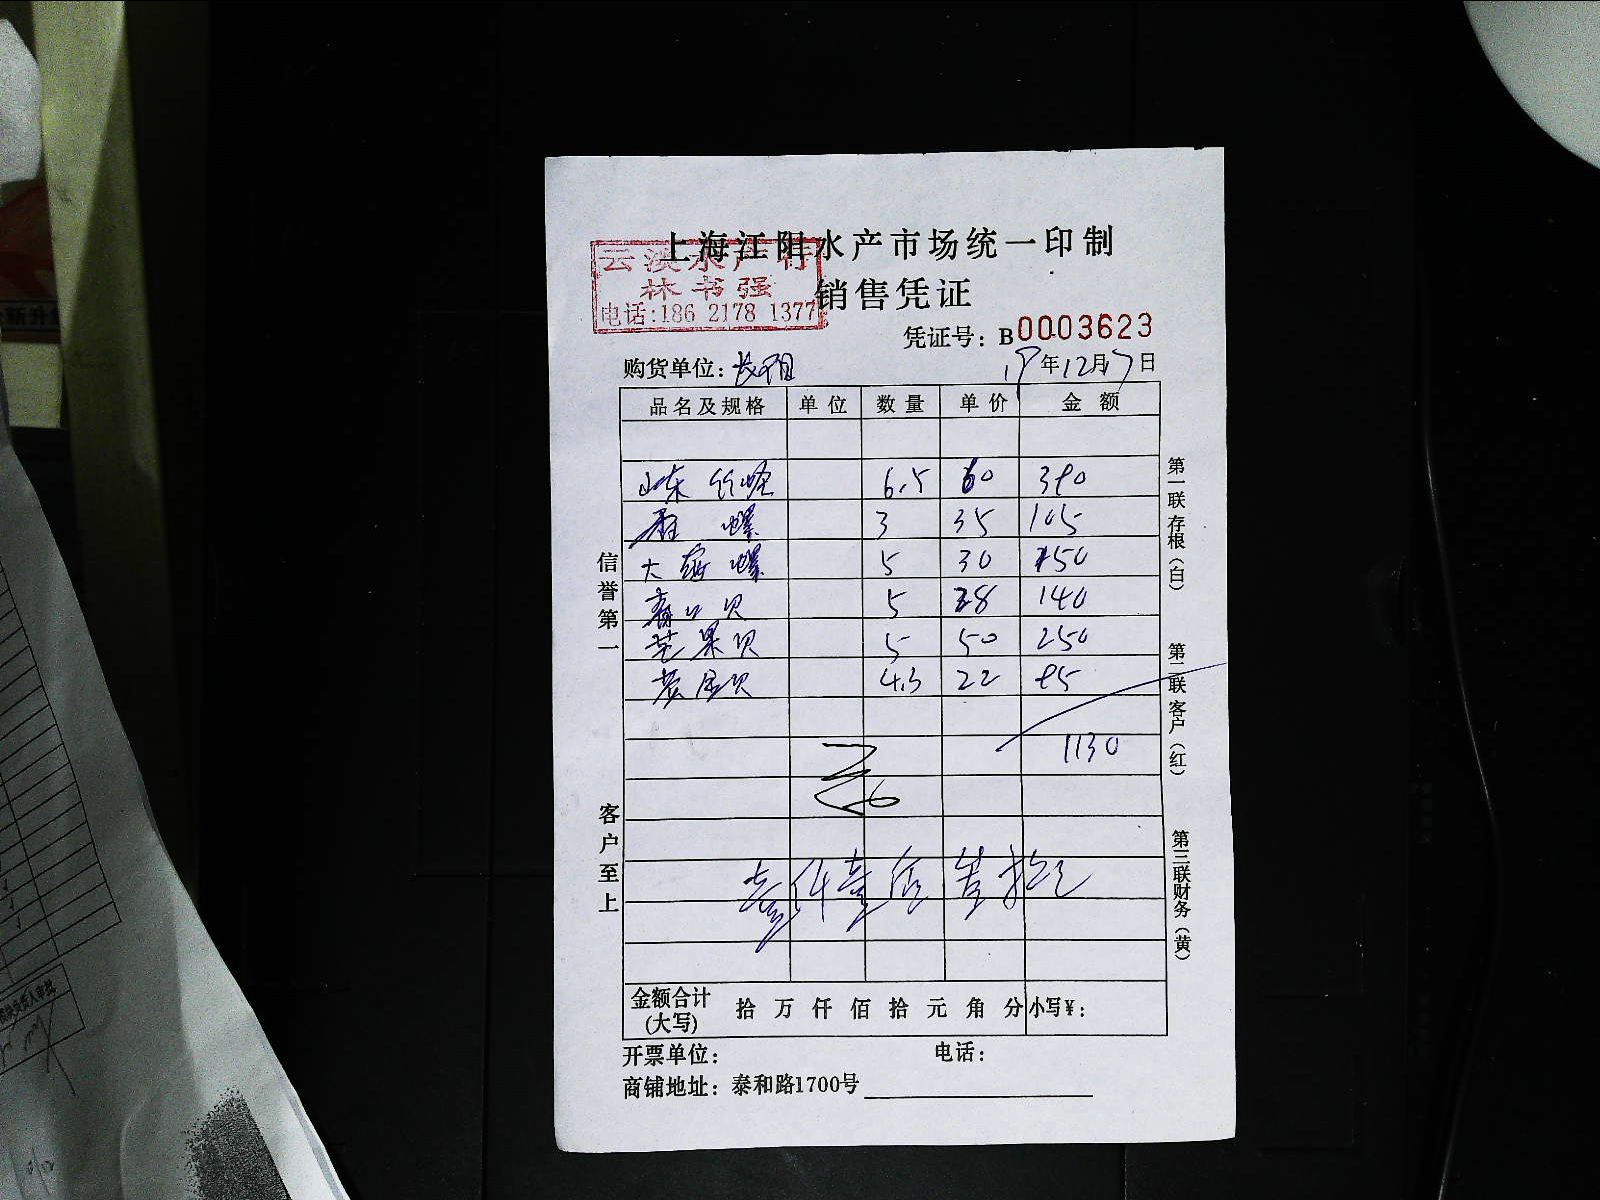 上海江阳水产市场统一印制
云淡水产行
林书强
电话:186 2178 1377
销售凭证
凭证号：B0003623
购货单位：长阳 19年12月7日
品名及规格 单位 数量 单价 金额
山东竹蛏 6.5 60 390
螺 3 35 105
大海螺 5 30 150
贝 5 28 140
芒果贝 5 50 250
黄金贝 4.3 22 95
1130
壹仟壹佰叁拾元
金额合计(大写) 拾 万 仟 佰 拾 元 角 分 小写¥：
开票单位： 电话：
商铺地址：泰和路1700号
信誉第一
客户至上
第一联存根（白）
第二联客户（红）
第三联财务（黄）